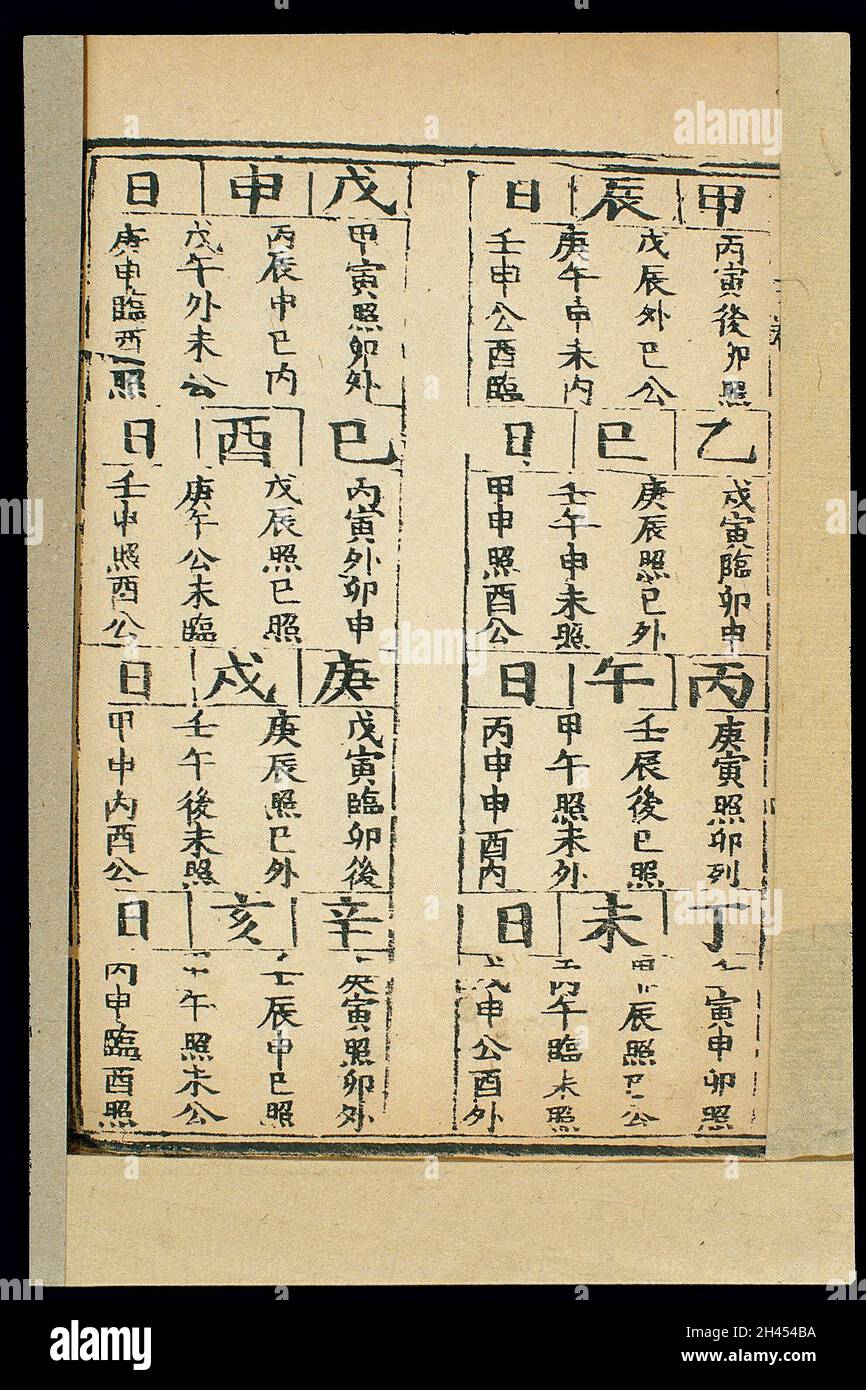 甲辰日
丙寅後卯照
戊辰外巳公
庚午申未内
壬申公酉臨
乙巳日
戊寅臨卯申
庚辰照巳外
壬午申未照
甲申照酉公
丙午日
庚寅照卯列
壬辰後巳照
甲午照未外
丙申申酉内
丁未日
寅申卯照
辰照巳公
午臨未照
申公酉外
戊申日
甲寅照卯外
丙辰申巳内
戊午外未公
庚申臨酉照
巳酉日
丙寅外卯申
戊辰照巳照
庚午公未臨
壬申照酉公
庚戌日
戊寅臨卯後
庚辰照巳外
壬午後未照
甲申内酉公
辛亥日
寅照卯外
壬辰申巳照
午照未公
丙申臨酉照
alamy
Image ID: 2H454BA
www.alamy.com